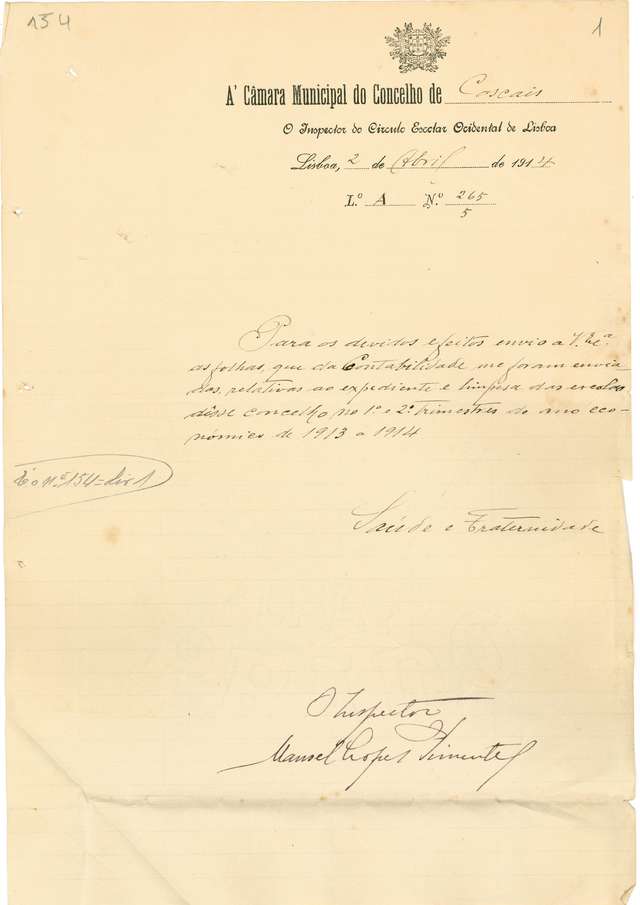 154
1
A' Câmara Municipal do Concelho de Cascais
O Inspector do Circulo Escolar Ocidental de Lisboa
Lisboa, 2 de Abril de 1914
L.º A N.º 265
5
Para os devidos efeitos envio a
as folhas, que da Contabilidade me foram envia
das, relativas ao expediente e limpesa das escolas
dêsse concelho no 1º e 2º trimestres do ano eco-
nómico de 1913 a 1914
É o nº 154 = Liv 1
Saúde e Fraternidade
O Inspector
Manoel Lopes Pimentel